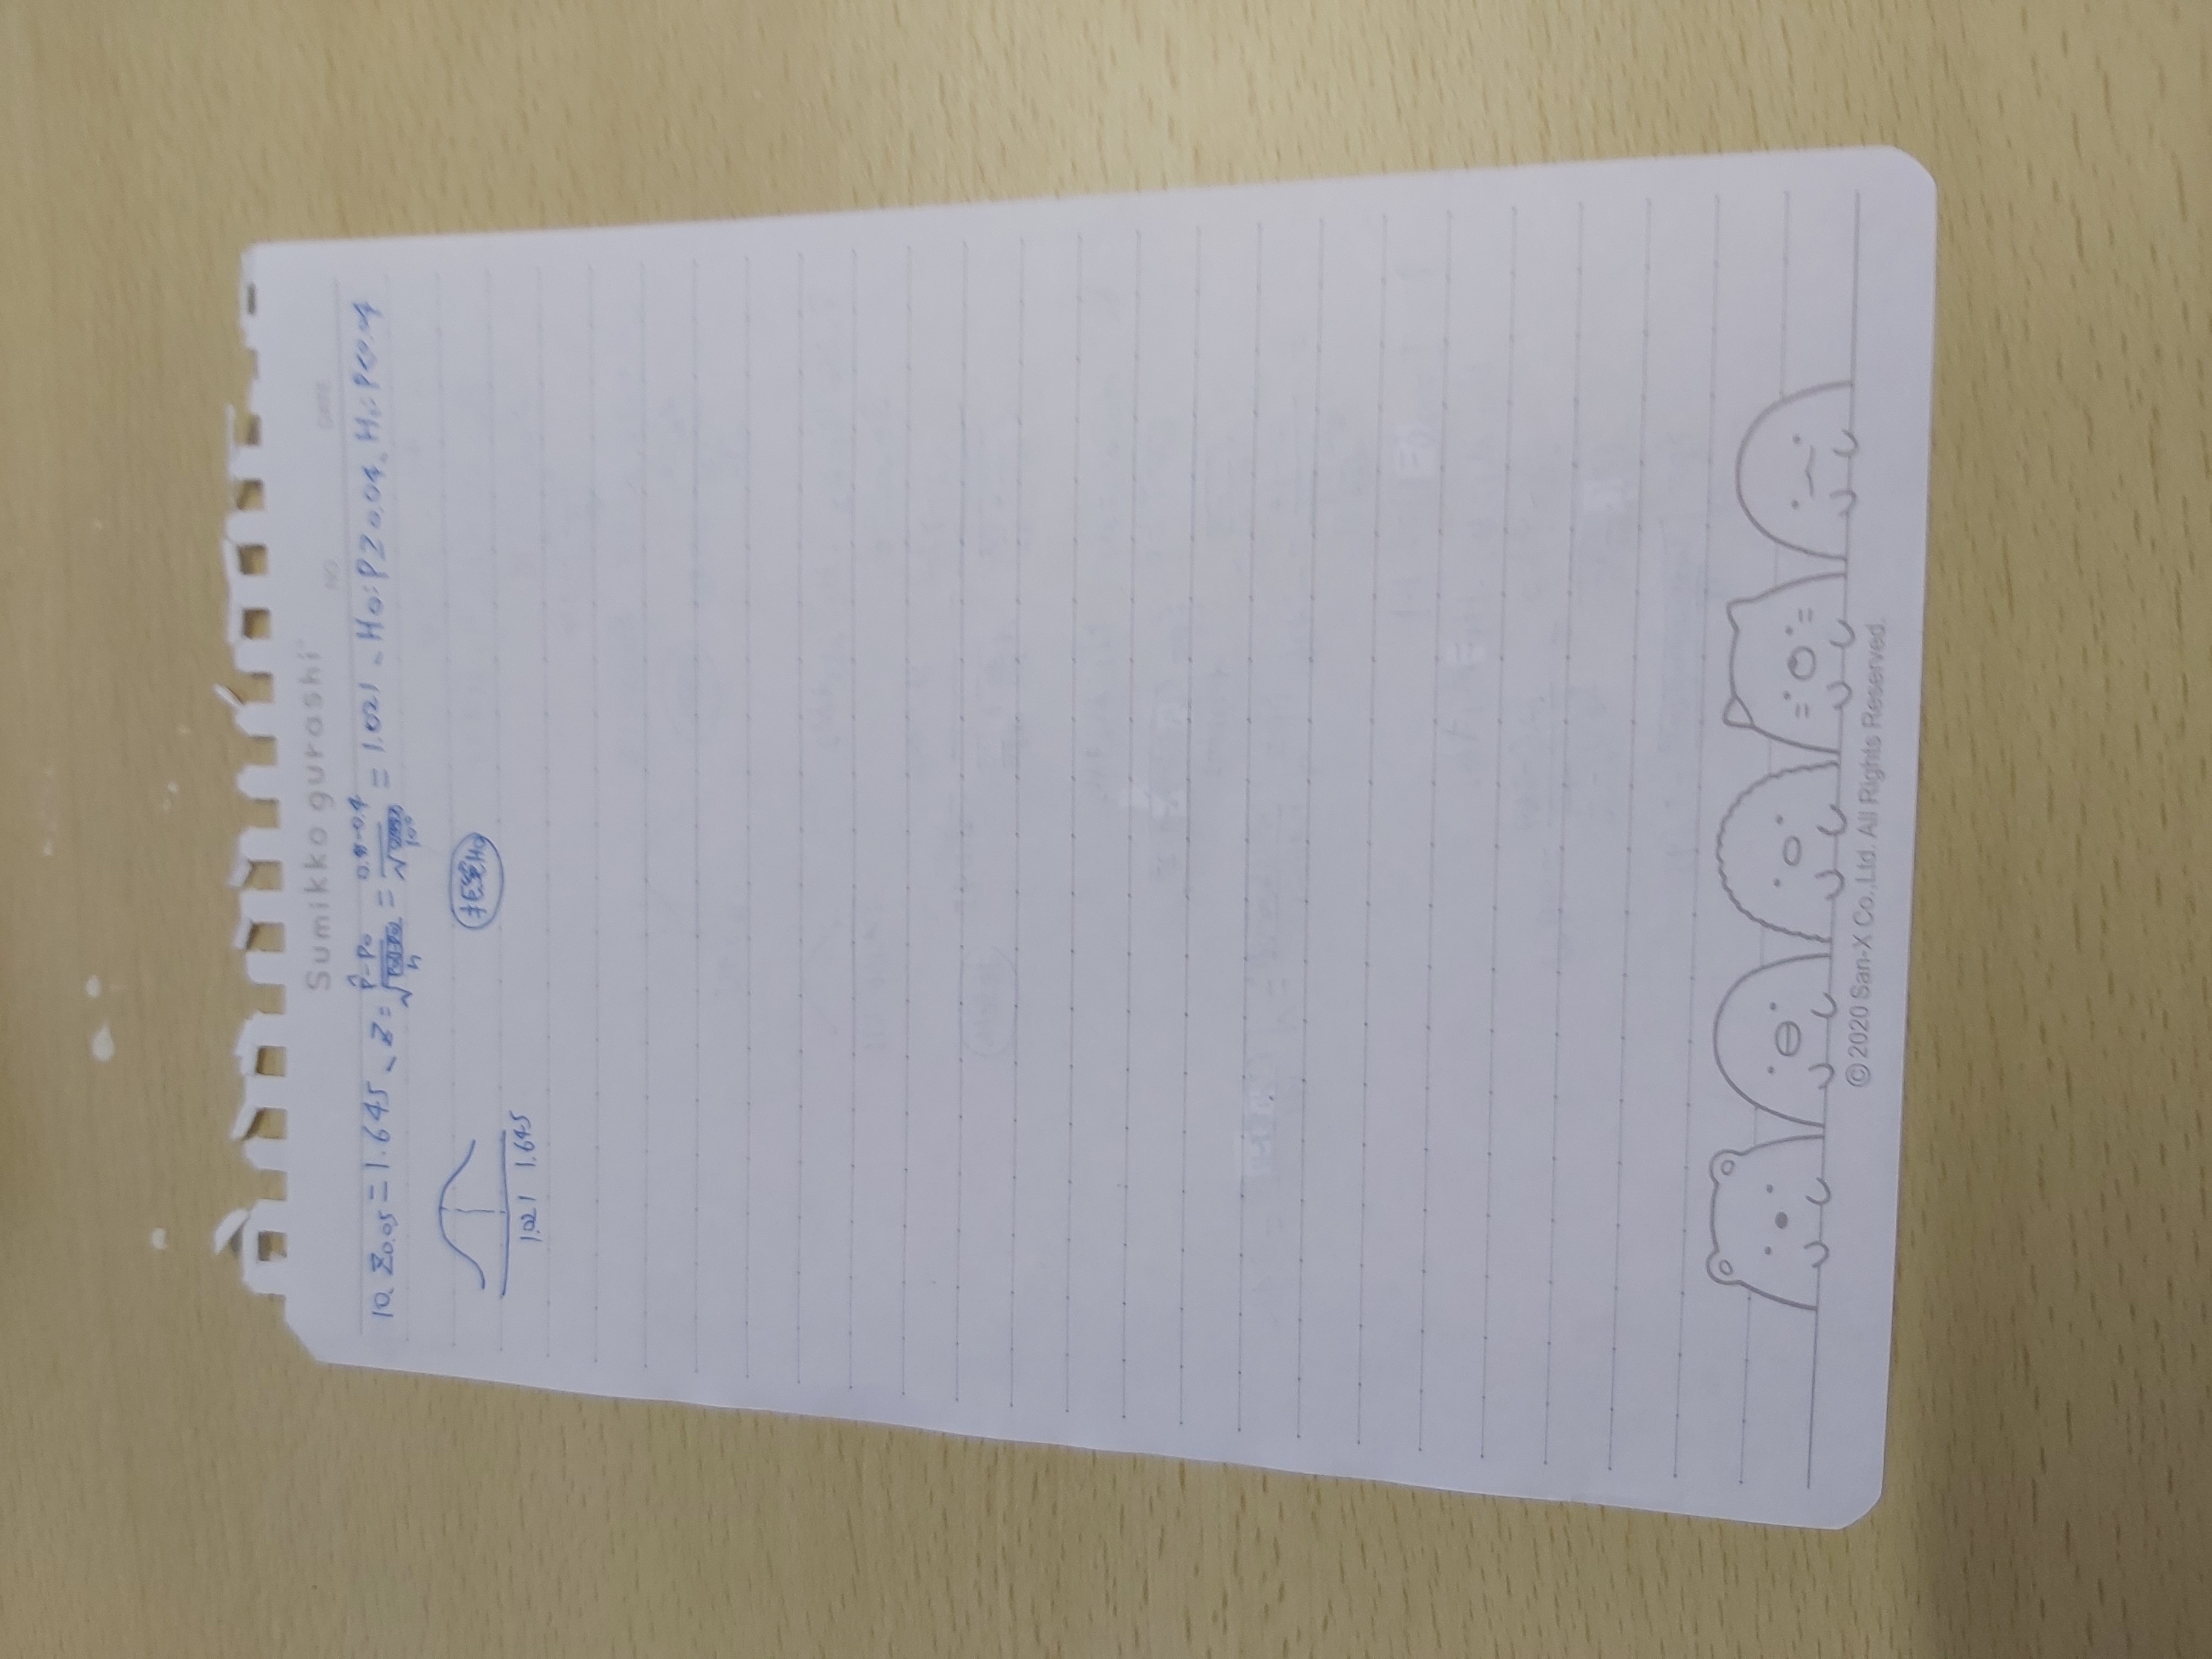 Sumikko gurashi
NO. DATE
10. Z0.05 = 1.645、Z = p̂-p0 / √(/n) = -0.4 / √(/100) = 1.021、H0: P≥0.04、H1: P<0.04
1.021 1.645
H0
© 2020 San-X Co.,Ltd. All Rights Reserved.